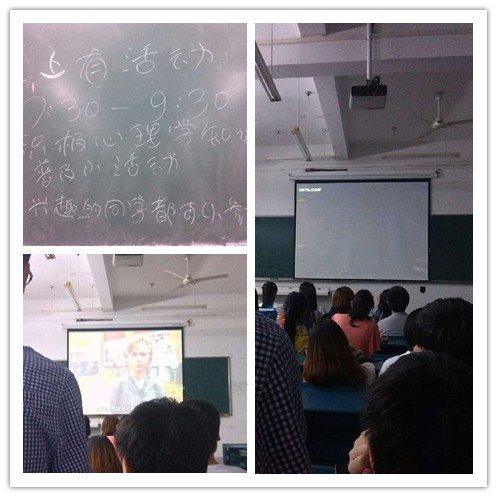 上有活动
7:30-9:30
积极心理学知识
普及小活动
兴趣的同学都可以参